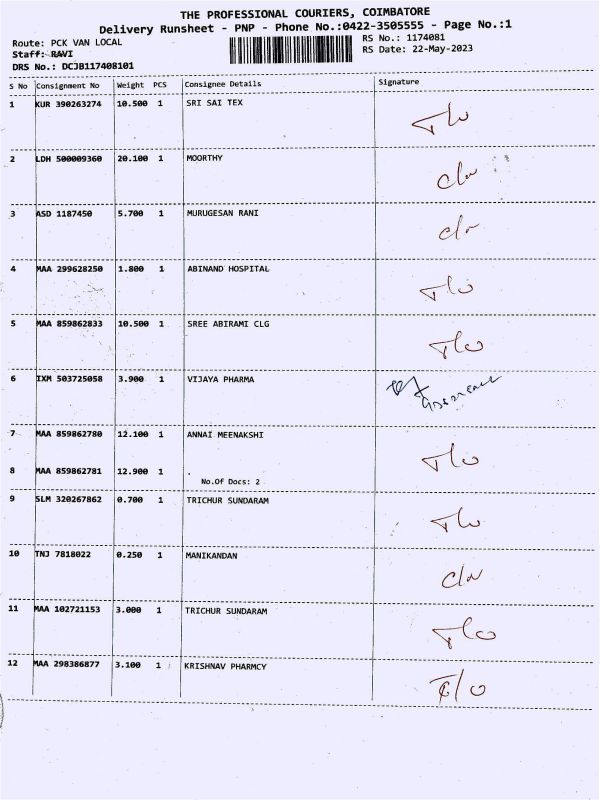 THE PROFESSIONAL COURIERS, COIMBATORE
Delivery Runsheet - PNP - Phone No.:0422-3505555 - Page No.:1
Route: PCK VAN LOCAL RS No.: 1174081
Staff: RAVI RS Date: 22-May-2023
DRS No.: DCJB117408101
S No Consignment No Weight PCS Consignee Details Signature
1 KUR 390263274 10.500 1 SRI SAI TEX T/o
2 LDH 500009360 20.100 1 MOORTHY
3 ASD 1187450 5.700 1 MURUGESAN RANI
4 MAA 299628250 1.800 1 ABINAND HOSPITAL T/o
5 MAA 859862833 10.500 1 SREE ABIRAMI CLG T/o
6 IXM 503725058 3.900 1 VIJAYA PHARMA
7 MAA 859862780 12.100 1 ANNAI MEENAKSHI T/o
8 MAA 859862781 12.900 1 .
No.Of Docs: 2
9 SLM 320267862 0.700 1 TRICHUR SUNDARAM T/o
10 TNJ 7818022 0.250 1 MANIKANDAN
11 MAA 102721153 3.000 1 TRICHUR SUNDARAM T/o
12 MAA 298386877 3.100 1 KRISHNAV PHARMCY T/o